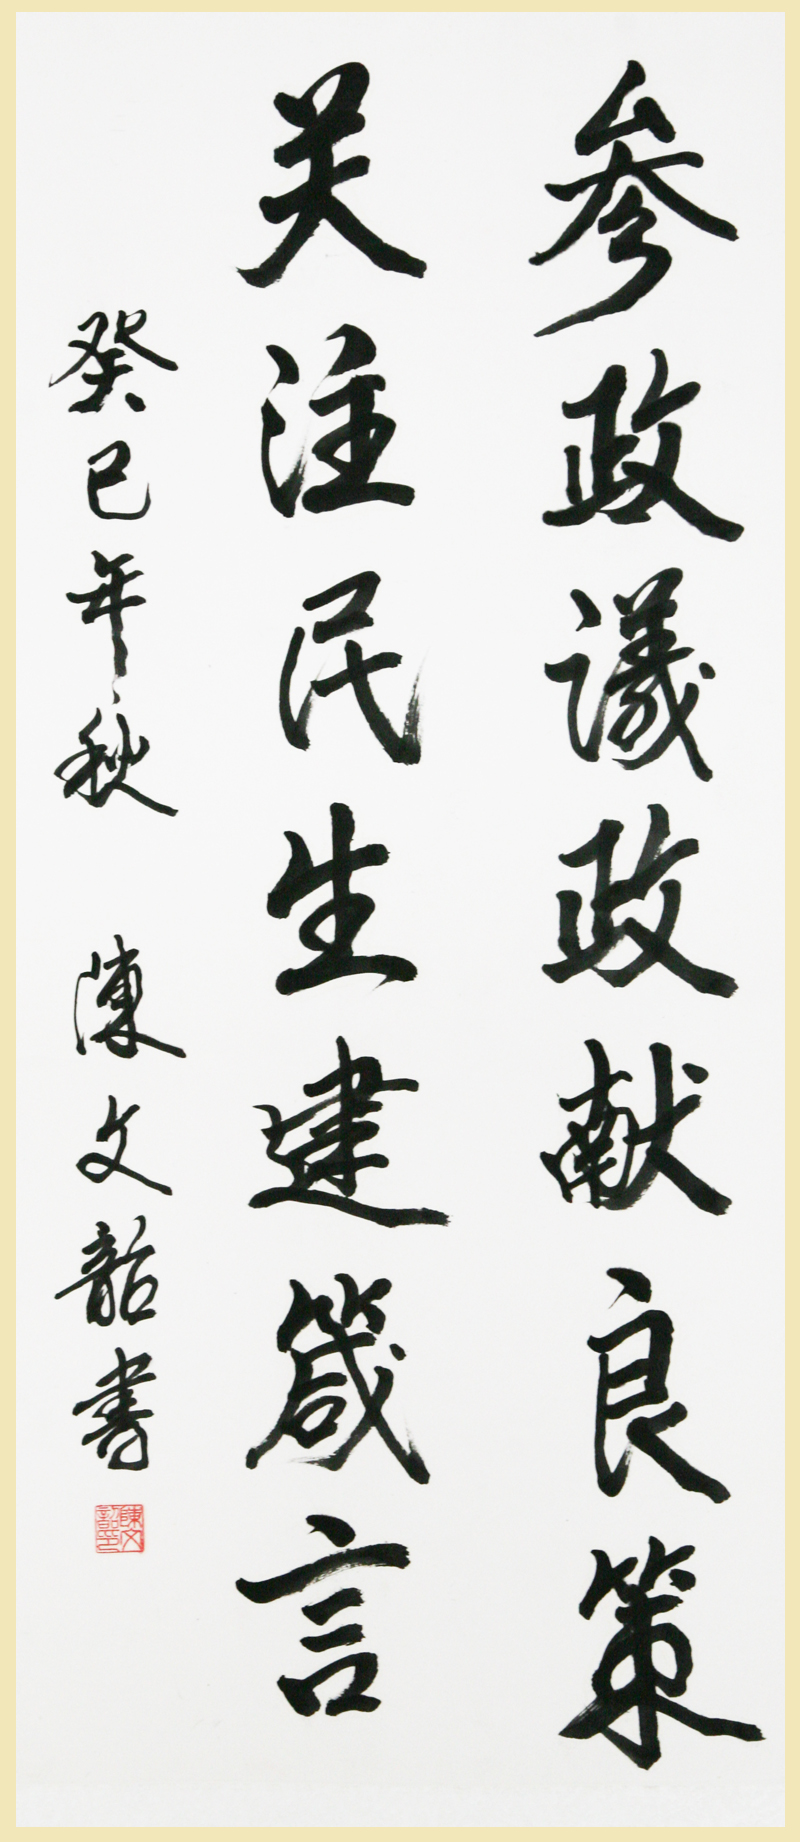 参政議政献良策
关注民生建箴言
癸巳年秋 陳文韶書
陳文韶印